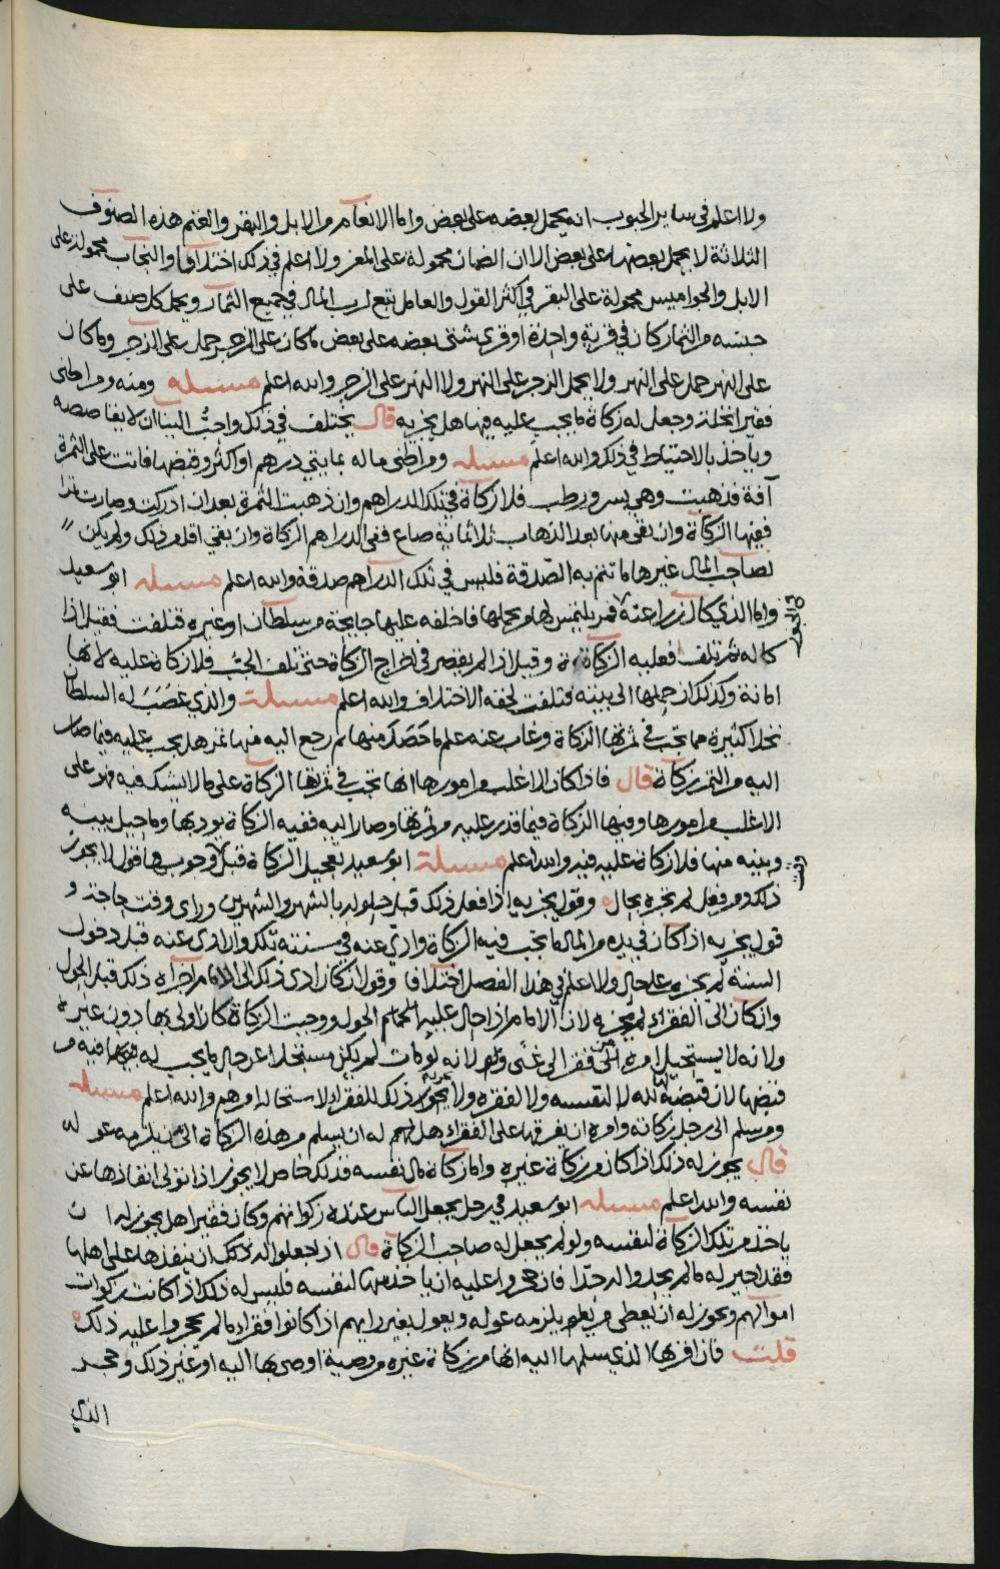 ولا اعلم في ساير الحبوب انه يحمل بعضه على بعض واما الانعام من الابل والبقر والغنم هذه الصنوف
الثلاثة لا يحمل بعضها على بعض الا ان الضان محمولة على المعز ولا اعلم في ذلك اختلافا والنجاب محمولة على
الابل والجواميس محمولة على البقر في اكثر القول والعامل تبع لرب المال في جميع الثمار ويحمل كل صنف على
جنسه من الثمار كان في قرية واحدة او قرى شتى بعضه على بعض ما كان على الزجر حمل على الزجر وما كان
على النهر حمل على النهر ولا يحمل الزجر على النهر ولا النهر على الزجر والله اعلم مسئلة ومنه ومن اطنى
فقيرا نخلة وجعل له زكاة ما يجب عليه فيها هل يجزيه قال يختلف في ذلك واحبُّ الينا ان لا يقاصصه
وياخذ بالاحتياط في ذلك والله اعلم مسئلة ومن اطنى ماله بمايتي درهم او اكثر وقبضها فاتت على الثمرة
آفة فذهبت وهي بسر ورطب فلا زكاة في تلك الدراهم وان ذهبت الثمرة بعد ان ادركت وصارت تمرا
ففيها الزكاة وان بقي منها بعد الذهاب ثلاثماية صاع ففي الدراهم الزكاة وان بقي اقل من ذلك ولم يكن
لصاحب المال غيرها ما تتم به الصدقة فليس في تلك الدراهم صدقة والله اعلم مسئلة ابو سعيد
واما الذي كال زراعته فمر يلتمس لها من يحملها فاخلفه عليها جايحة من سلطان او غيره فتلفت فقيل اذا
كاله ثم تلف فعليه الزكاة وقيل اذا لم يقصر في اخراج الزكاة حتى تلف الحب فلا زكاة عليه لانها
امانة وكذلك ان حملها الى بيته فتلفت لحقه الاختلاف والله اعلم مسئلة والذي غصب له السلطان
نخلا كثيرة مما تجب في ثمرتها الزكاة وغاب عنه علم ما حصد منها ثم رجع اليه منها تمر هل يجب عليه فيما صار
اليه من التمر زكاة قال فاذا كان الاغلب من امورها انها تجب في ثمرتها الزكاة على ما لا يشك فيه فهو على
الاغلب من امورها وفيها الزكاة فيما قدر عليه من ثمرتها وصار اليه ففيه الزكاة يوديها وما حيل بينه
وبينه منها فلا زكاة عليه فيه والله اعلم مسئلة ابو سعيد تعجيل الزكاة قبل وجوبها قول لا يجوز
ذلك ومن فعل لم يجزه بحال وقول يجزيه اذا فعل ذلك قبل حلوله بالشهر والشهرين وراى وقت حاجة و
قول يجزيه اذا كان في يده من المال ما تجب فيه الزكاة وادي عنه في سنته تلك وان ادي عنه قبل دخول
السنة لم يجزه على حال ولا اعلم في هذا الفصل اختلافا وقول ان كان ادى ذلك الى الامام اجزاه ذلك قبل الحول
وان كان الى الفقراء لم يجزيه لان الامام اذا حال عليه الحول ووجبت الزكاة كان اولى بها دون غيره
ولانه لا يستحيل امره الى فقر الى غنى ولانه لو مات لم يكن مستحلا عن حال ما يجب له فيه من
قبضها لان قبضة لله لا لنفسه ولا لفقره ولا يجوز ذلك للفقراء لاستحالة امرهم والله اعلم مسئلة
ومن سلم الى رجل زكاته وامره ان يفرقها على الفقراء هل لهم له ان يسلم من هذه الزكاة الى من يلزمه عوله
قال يجوز له ذلك اذا كان من زكاة غيره واما زكاة مال نفسه فذلك خاص لا يجوز اذا تولى انفاذها عن
نفسه والله اعلم مسئلة ابو سعيد في رجل يجعل الناس عنده زكواتهم وكان فقيرا هل يجوز له ان
ياخذ من تلك الزكاة لنفسه ولو لم يجعل له صاحب الزكاة قال اذا جعلوا له ذلك ان ينفذها على اهلها
فقد اجيز له ما لم يحدوا له حدا فان حجروا عليه ان ياخذ منها لنفسه فليس له ذلك اذا كانت زكوات
اموالهم ويجوز له ان يعطي من يلزمه عوله ويعول بغير رايهم اذا كانوا فقراء ما لم يحجروا عليه ذلك
قلت فان اقر بها الذي سلمها اليه انها من زكاة غيره من وصية اوصى بها اليه او غير ذلك وحجر
الذي